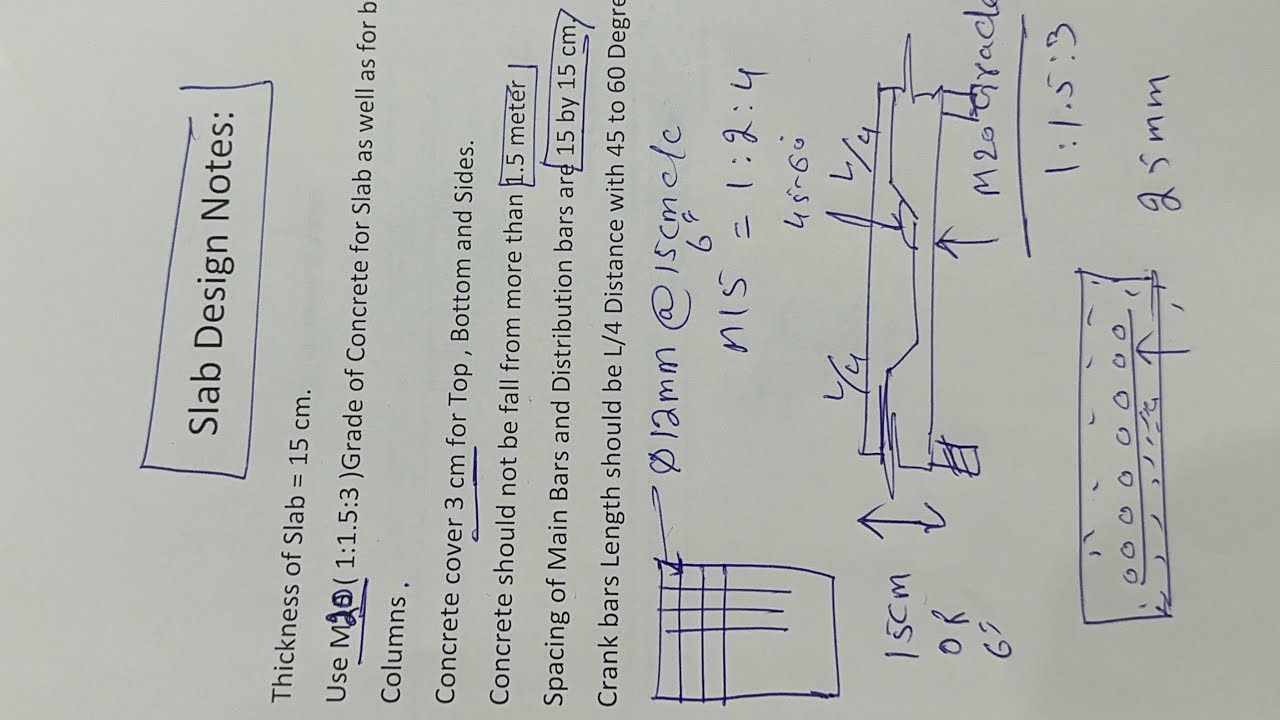 Slab Design Notes:
Thickness of Slab = 15 cm.
Use M20 ( 1:1.5:3 )Grade of Concrete for Slab as well as for b
Columns .
Concrete cover 3 cm for Top , Bottom and Sides.
Concrete should not be fall from more than 1.5 meter
Spacing of Main Bars and Distribution bars are 15 by 15 cm.
Crank bars Length should be L/4 Distance with 45 to 60 Degre
Ø12mm @ 15cm c/c
6"
M15 = 1:2:4
45-60
L/4 L/4
15cm
OR
6"
M20 Grade
1:1.5:3
25mm